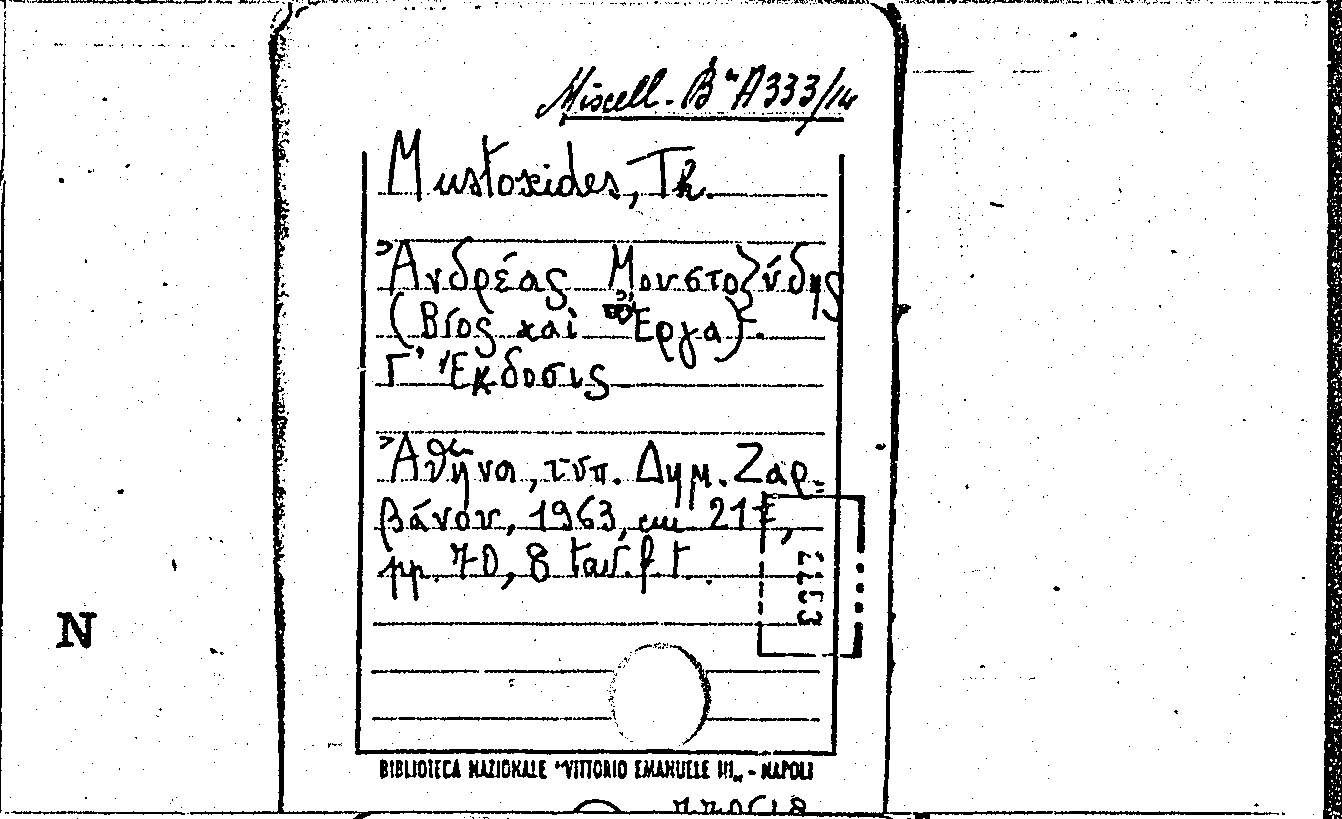 Miscell. Bª A333/14
Mustoxides, Th.
Ἀνδρέας Μουστοξύδης
(Βίος καὶ Ἔργα).
Γ' Ἔκδοσις
Ἀθῆναι, τυπ. Δημ. Ζαρ=
βάνου, 1963, cm 21,
pp. 70, 8 tav. f. t.
N
BIBLIOTECA NAZIONALE "VITTORIO EMANUELE III„ - NAPOLI